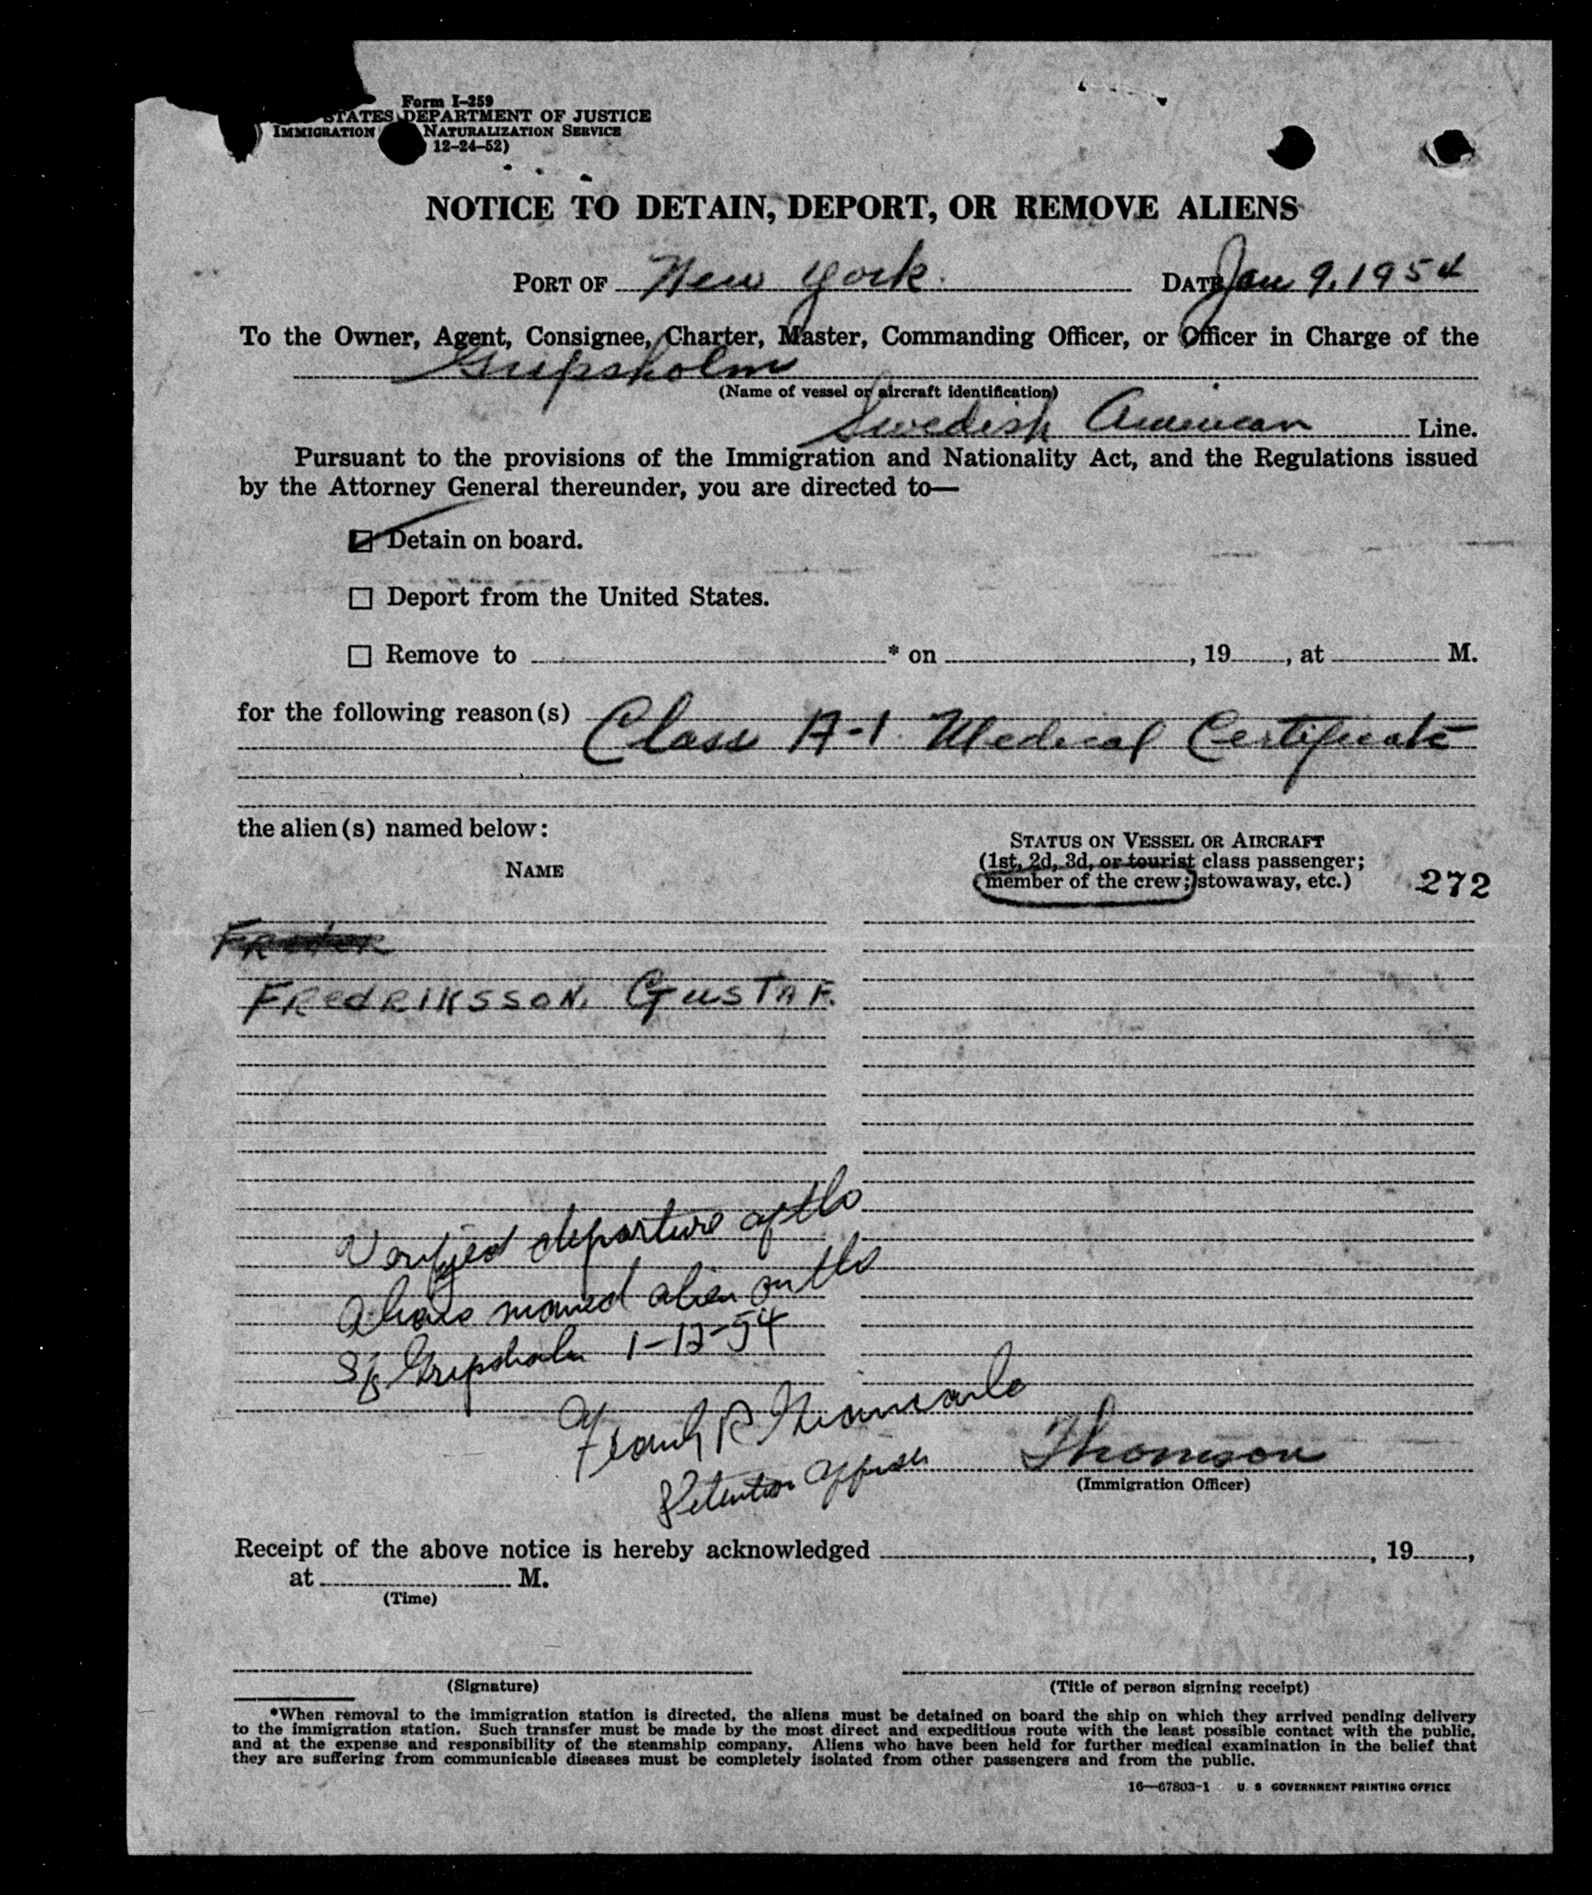 Form I-259
STATES DEPARTMENT OF JUSTICE
IMMIGRATION NATURALIZATION SERVICE
12-24-52)
NOTICE TO DETAIN, DEPORT, OR REMOVE ALIENS
PORT OF New York. DATE Jan 9, 1954
To the Owner, Agent, Consignee, Charter, Master, Commanding Officer, or Officer in Charge of the
Gripsholm
(Name of vessel or aircraft identification)
Swedish American Line.
Pursuant to the provisions of the Immigration and Nationality Act, and the Regulations issued
by the Attorney General thereunder, you are directed to—
Detain on board.
Deport from the United States.
Remove to * on , 19 , at M.
for the following reason(s) Class A-1 Medical Certificate
the alien(s) named below:
STATUS ON VESSEL OR AIRCRAFT
NAME (1st, 2d, 3d, or tourist class passenger;
member of the crew; stowaway, etc.) 272
FREDRIKSSON, GUSTAF.
Verified departure of the
above named alien on the
SS Gripsholm 1-12-54
Frank R
Detention Officer Thomson
(Immigration Officer)
Receipt of the above notice is hereby acknowledged , 19 ,
at M.
(Time)
(Signature) (Title of person signing receipt)
*When removal to the immigration station is directed, the aliens must be detained on board the ship on which they arrived pending delivery
to the immigration station. Such transfer must be made by the most direct and expeditious route with the least possible contact with the public,
and at the expense and responsibility of the steamship company. Aliens who have been held for further medical examination in the belief that
they are suffering from communicable diseases must be completely isolated from other passengers and from the public.
16—67803-1 U. S GOVERNMENT PRINTING OFFICE